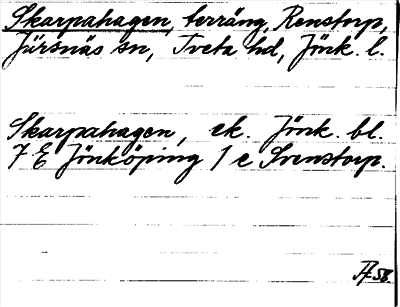 Skarpahagen, terräng, Renstorp,
Järsnäs sn, Tveta hd, Jönk. l.
Skarpahagen, ek. Jönk. bl.
7 E Jönköping 1 e Svenstorp.